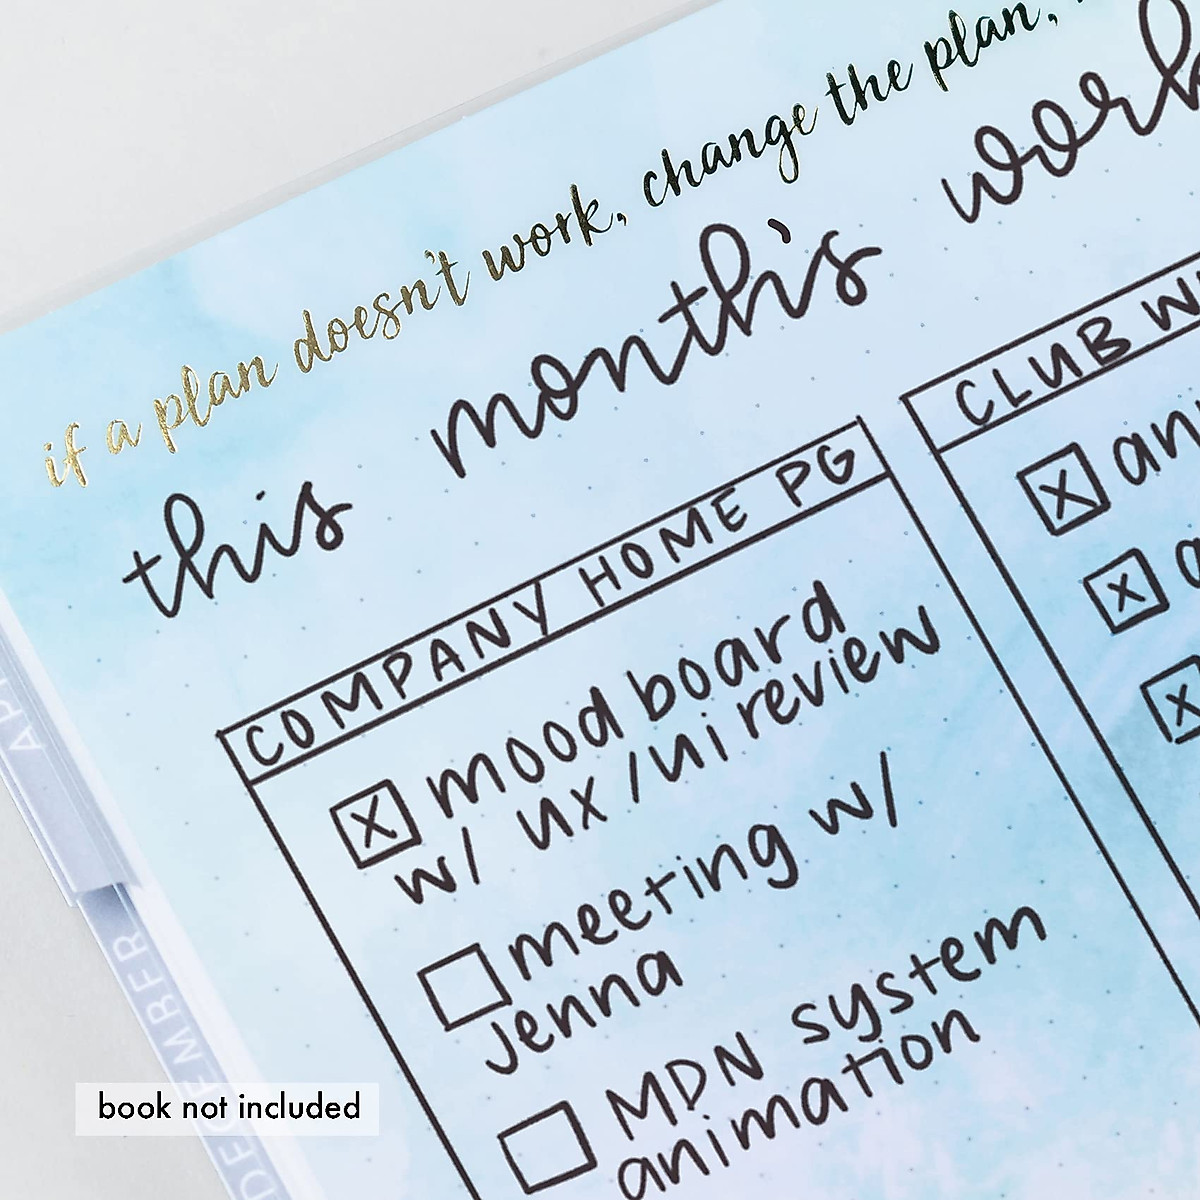 if a plan doesn't work, change the plan,
this month's work
COMPANY HOME PG
mood board
w/ ux/ui review
meeting w/
Jenna
MDN system
animation
CLUB
DECEMBER
book not included